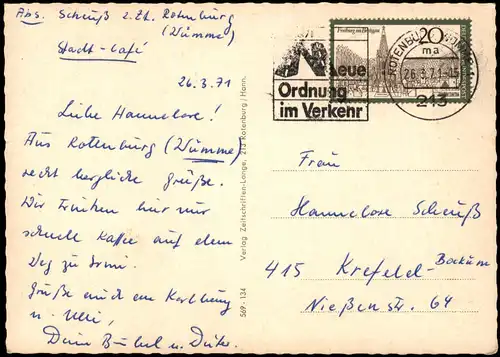 Abs. Scheuß z. Zt. Rotenburg
(Wümme)
Stadt-Café
26.3.71
Liebe Hannelore!
Aus Rotenburg (Wümme)
recht herzliche Grüße.
Wir trinken hier nur
schnell Kaffee auf dem
Weg zu
Grüße auch
u.
Dein u. Dieter.
569-134 Verlag Zeitschriften-Lange, 213 Rotenburg/Hann.
Neue
Ordnung
im Verkehr
Freiburg im Breisgau
20
ROTENBURG
ma
26.3.71-15
213
Frau
Hannelore Scheuß
415 Krefeld-Bockum
Nießenstr. 64